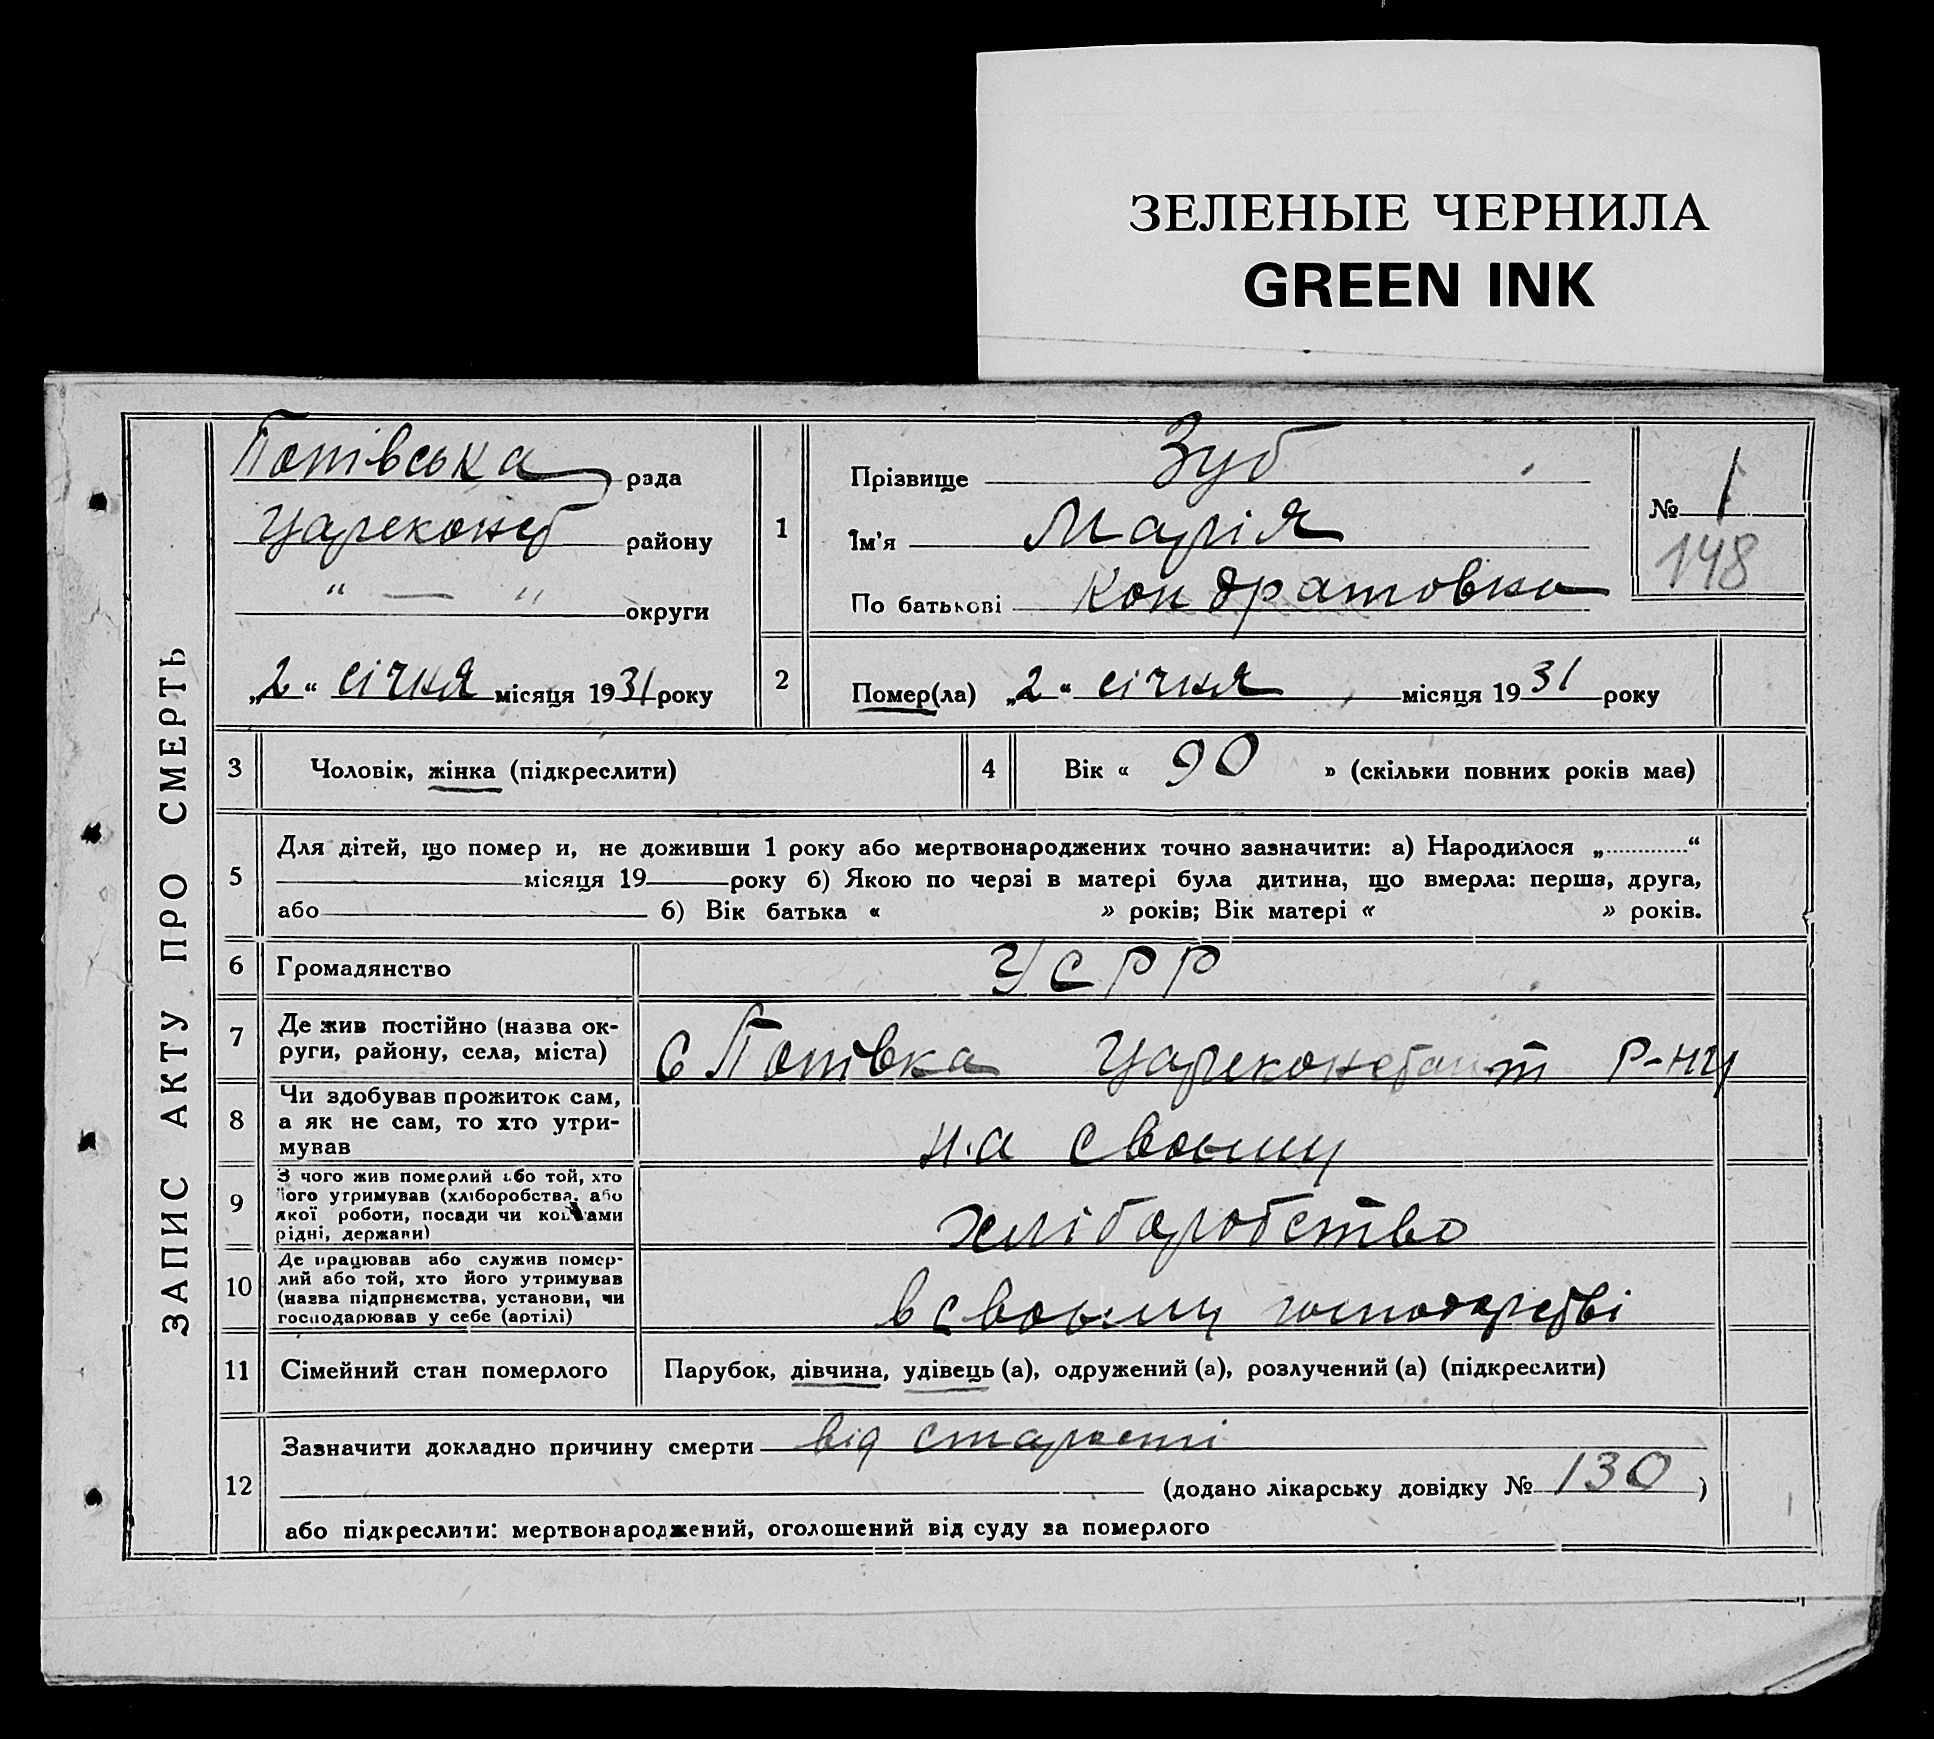 ЗЕЛЕНЫЕ ЧЕРНИЛА
GREEN INK
ЗАПИС АКТУ ПРО СМЕРТЬ
Попівська рада
Цареконст району
“ — “ округи
„2“ січня місяця 1931 року
1
Прізвище Зуб
Ім'я Марія
По батькові Кондратовна
№ 1
148
2
Помер(ла) „2“ січня місяця 1931 року
3 Чоловік, жінка (підкреслити)
4 Вік « 90 » (скільки повних років має)
5
Для дітей, що помер и, не доживши 1 року або мертвонароджених точно зазначити: а) Народилося „ “
місяця 19 року б) Якою по черзі в матері була дитина, що вмерла: перша, друга,
або б) Вік батька « » років; Вік матері « » років.
6 Громадянство УСРР
7 Де жив постійно (назва ок-
руги, району, села, міста)
с Попівка Цареконстант р-ну
8 Чи здобував прожиток сам,
а як не сам, то хто утри-
мував
на своьму
9 З чого жив померлий або той, хто
його утримував (хліборобства, або
якої роботи, посади чи коштами
рідні, держави)
хліборобство
10 Де працював або служив помер-
лий або той, хто його утримував
(назва підприємства, установи, чи
господарював у себе (артілі)
в своьму господарстві
11 Сімейний стан померлого Парубок, дівчина, удівець (а), одружений (а), розлучений (а) (підкреслити)
12
Зазначити докладно причину смерти від старости
(додано лікарську довідку № 130 )
або підкреслити: мертвонароджений, оголошений від суду за померлого